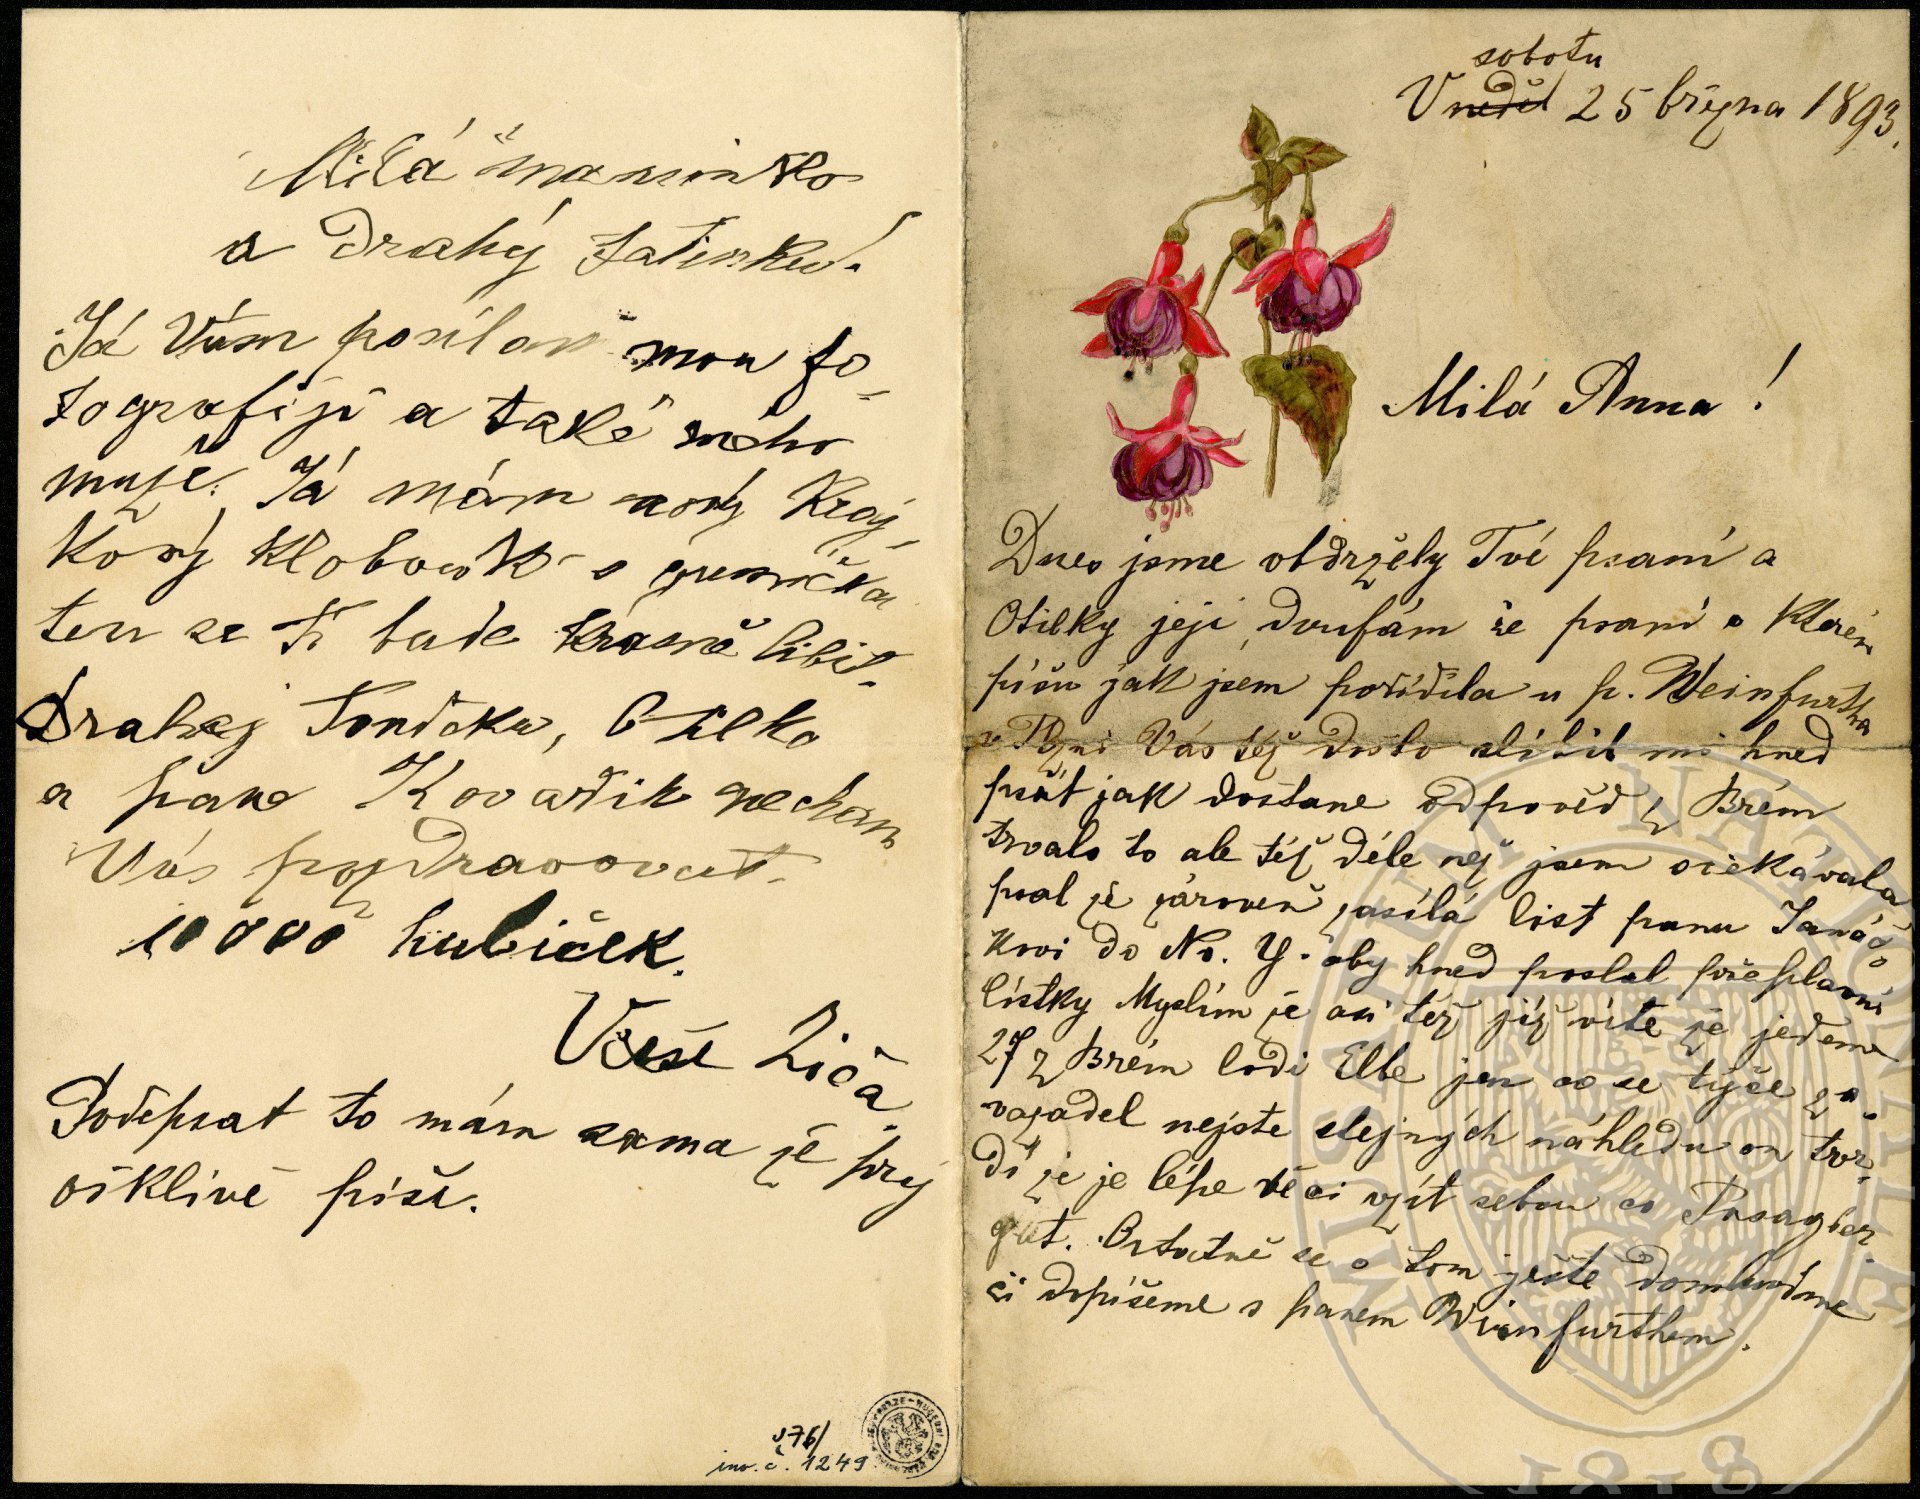 Milá maminko
a Drahý tatínku!
Já Vám posílam mou fo-
tografiji a také mého
muže. Já mám nový kraj-
kový klobouk s
ten se Ti bude krásně líbit.
Drahej Toníčku, Otilko
a pane Kovařík nechám
Vás pozdravovat.
10000 hubiček.
Vaše Ziča.
Podepsat to mám sama že prý
ošklivě píši.
576/
inv. č. 1249
sobotu
V neděl 25 března 1893.
Milá Anna!
Dnes jsme obdrzěly Tvé psaní a
Otilky její, doufám že psaní v kterém
píšu jak jsem pořídila u p. Weinfurtra
v Plzni Vás též došlo slíbil mi hned
psát jak dostane odpověd z Brém
trvalo to ale též déle než jsem očekávala
psal že zároveň zasílá list panu Janáč
kovi do N. Y. aby hned poslal přeplavní
lístky Myslím že asi též již víte že jedeme
27 z Brém lodí Elbe jen co se týče za-
vazadel nejste stejných náhledu on tvr-
dí že je lépe věci vzít sebou co
gut. Ostatně se o tom ještě domluvíme
či dopíšeme s panem Weinfurthem.
1818